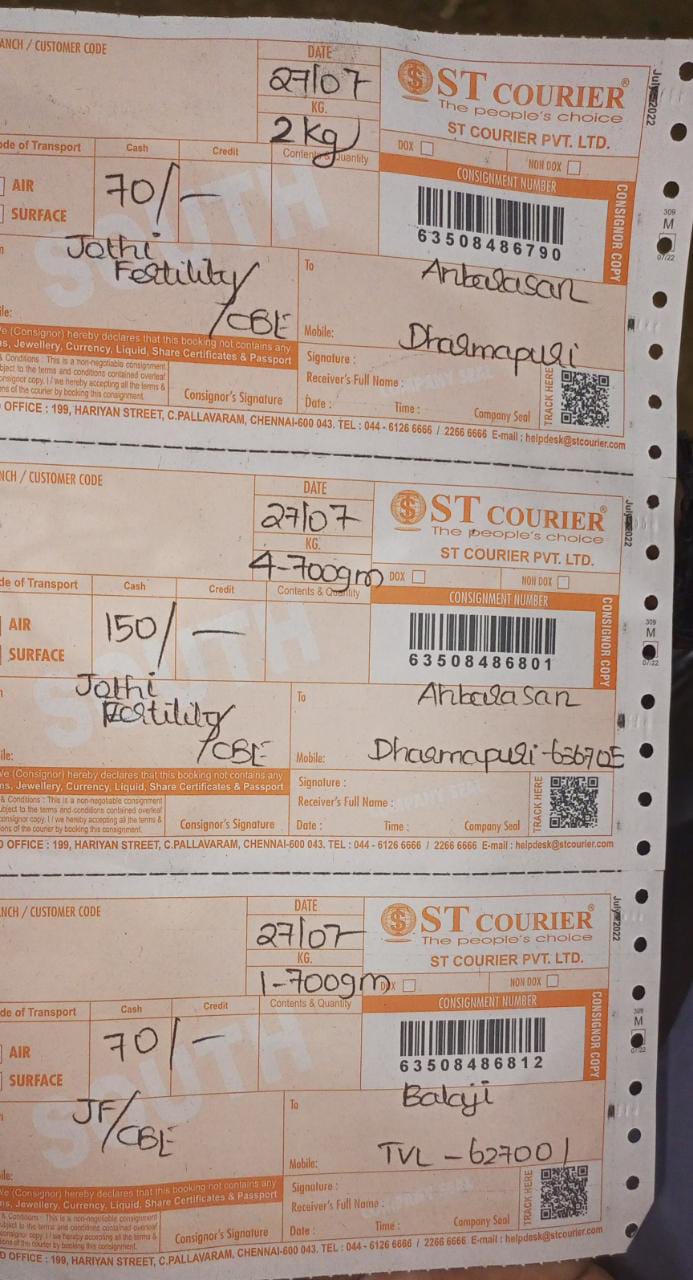 ANCH / CUSTOMER CODE
DATE
27/07
KG.
2 kg
ST COURIER®
The people's choice
ST COURIER PVT. LTD.
DOX
NON DOX
July 2022
ode of Transport
Cash
Credit
Contents & Quantity
AIR
SURFACE
70/—
SOUTH
CONSIGNMENT NUMBER
63508486790
CONSIGNOR COPY
309
M
07/22
Jothi
Fertility
/CBE
To
Anbarasan
Mobile:
Dharmapuri
le:
e (Consignor) hereby declares that this booking not contains any
s, Jewellery, Currency, Liquid, Share Certificates & Passport
& Conditions : This is a non-negotiable consignment
bject to the terms and conditions contained overleaf
onsignor copy. I / we hereby accepting all the terms &
ns of the courier by booking this consignment.
Consignor's Signature
Signature :
Receiver's Full Name :
Date :
Time :
Company Seal
TRACK HERE
OFFICE : 199, HARIYAN STREET, C.PALLAVARAM, CHENNAI-600 043. TEL : 044 - 6126 6666 / 2266 6666 E-mail : helpdesk@stcourier.com
NCH / CUSTOMER CODE
DATE
27/07
KG.
4-700gm
ST COURIER®
The people's choice
ST COURIER PVT. LTD.
DOX
NON DOX
July 2022
de of Transport
Cash
Credit
Contents & Quantity
AIR
SURFACE
150/—
SOUTH
CONSIGNMENT NUMBER
63508486801
CONSIGNOR COPY
309
M
07/22
Jothi
Fertility
/CBE
To
Anbarasan
Mobile:
Dharmapuri-636705
le:
e (Consignor) hereby declares that this booking not contains any
ms, Jewellery, Currency, Liquid, Share Certificates & Passport
& Conditions : This is a non-negotiable consignment
ubject to the terms and conditions contained overleaf
consignor copy. I / we hereby accepting all the terms &
ons of the courier by booking this consignment.
Consignor's Signature
Signature :
Receiver's Full Name :
Date :
Time :
Company Seal
TRACK HERE
OFFICE : 199, HARIYAN STREET, C.PALLAVARAM, CHENNAI-600 043. TEL : 044 - 6126 6666 / 2266 6666 E-mail : helpdesk@stcourier.com
NCH / CUSTOMER CODE
DATE
27/07
KG.
1-700gm
ST COURIER®
The people's choice
ST COURIER PVT. LTD.
DOX
NON DOX
July 2022
de of Transport
Cash
Credit
Contents & Quantity
AIR
SURFACE
70/—
SOUTH
CONSIGNMENT NUMBER
63508486812
CONSIGNOR COPY
309
M
07/22
JF/CBE
To
Balaji
Mobile:
TVL - 627001
ile:
We (Consignor) hereby declares that this booking not contains any
ms, Jewellery, Currency, Liquid, Share Certificates & Passport
& Conditions : This is a non-negotiable consignment
subject to the terms and conditions contained overleaf
consignor copy. I / we hereby accepting all the terms &
tions of the courier by booking this consignment.
Consignor's Signature
Signature :
Receiver's Full Name :
Date :
Time :
Company Seal
TRACK HERE
OFFICE : 199, HARIYAN STREET, C.PALLAVARAM, CHENNAI-600 043. TEL : 044 - 6126 6666 / 2266 6666 E-mail : helpdesk@stcourier.com